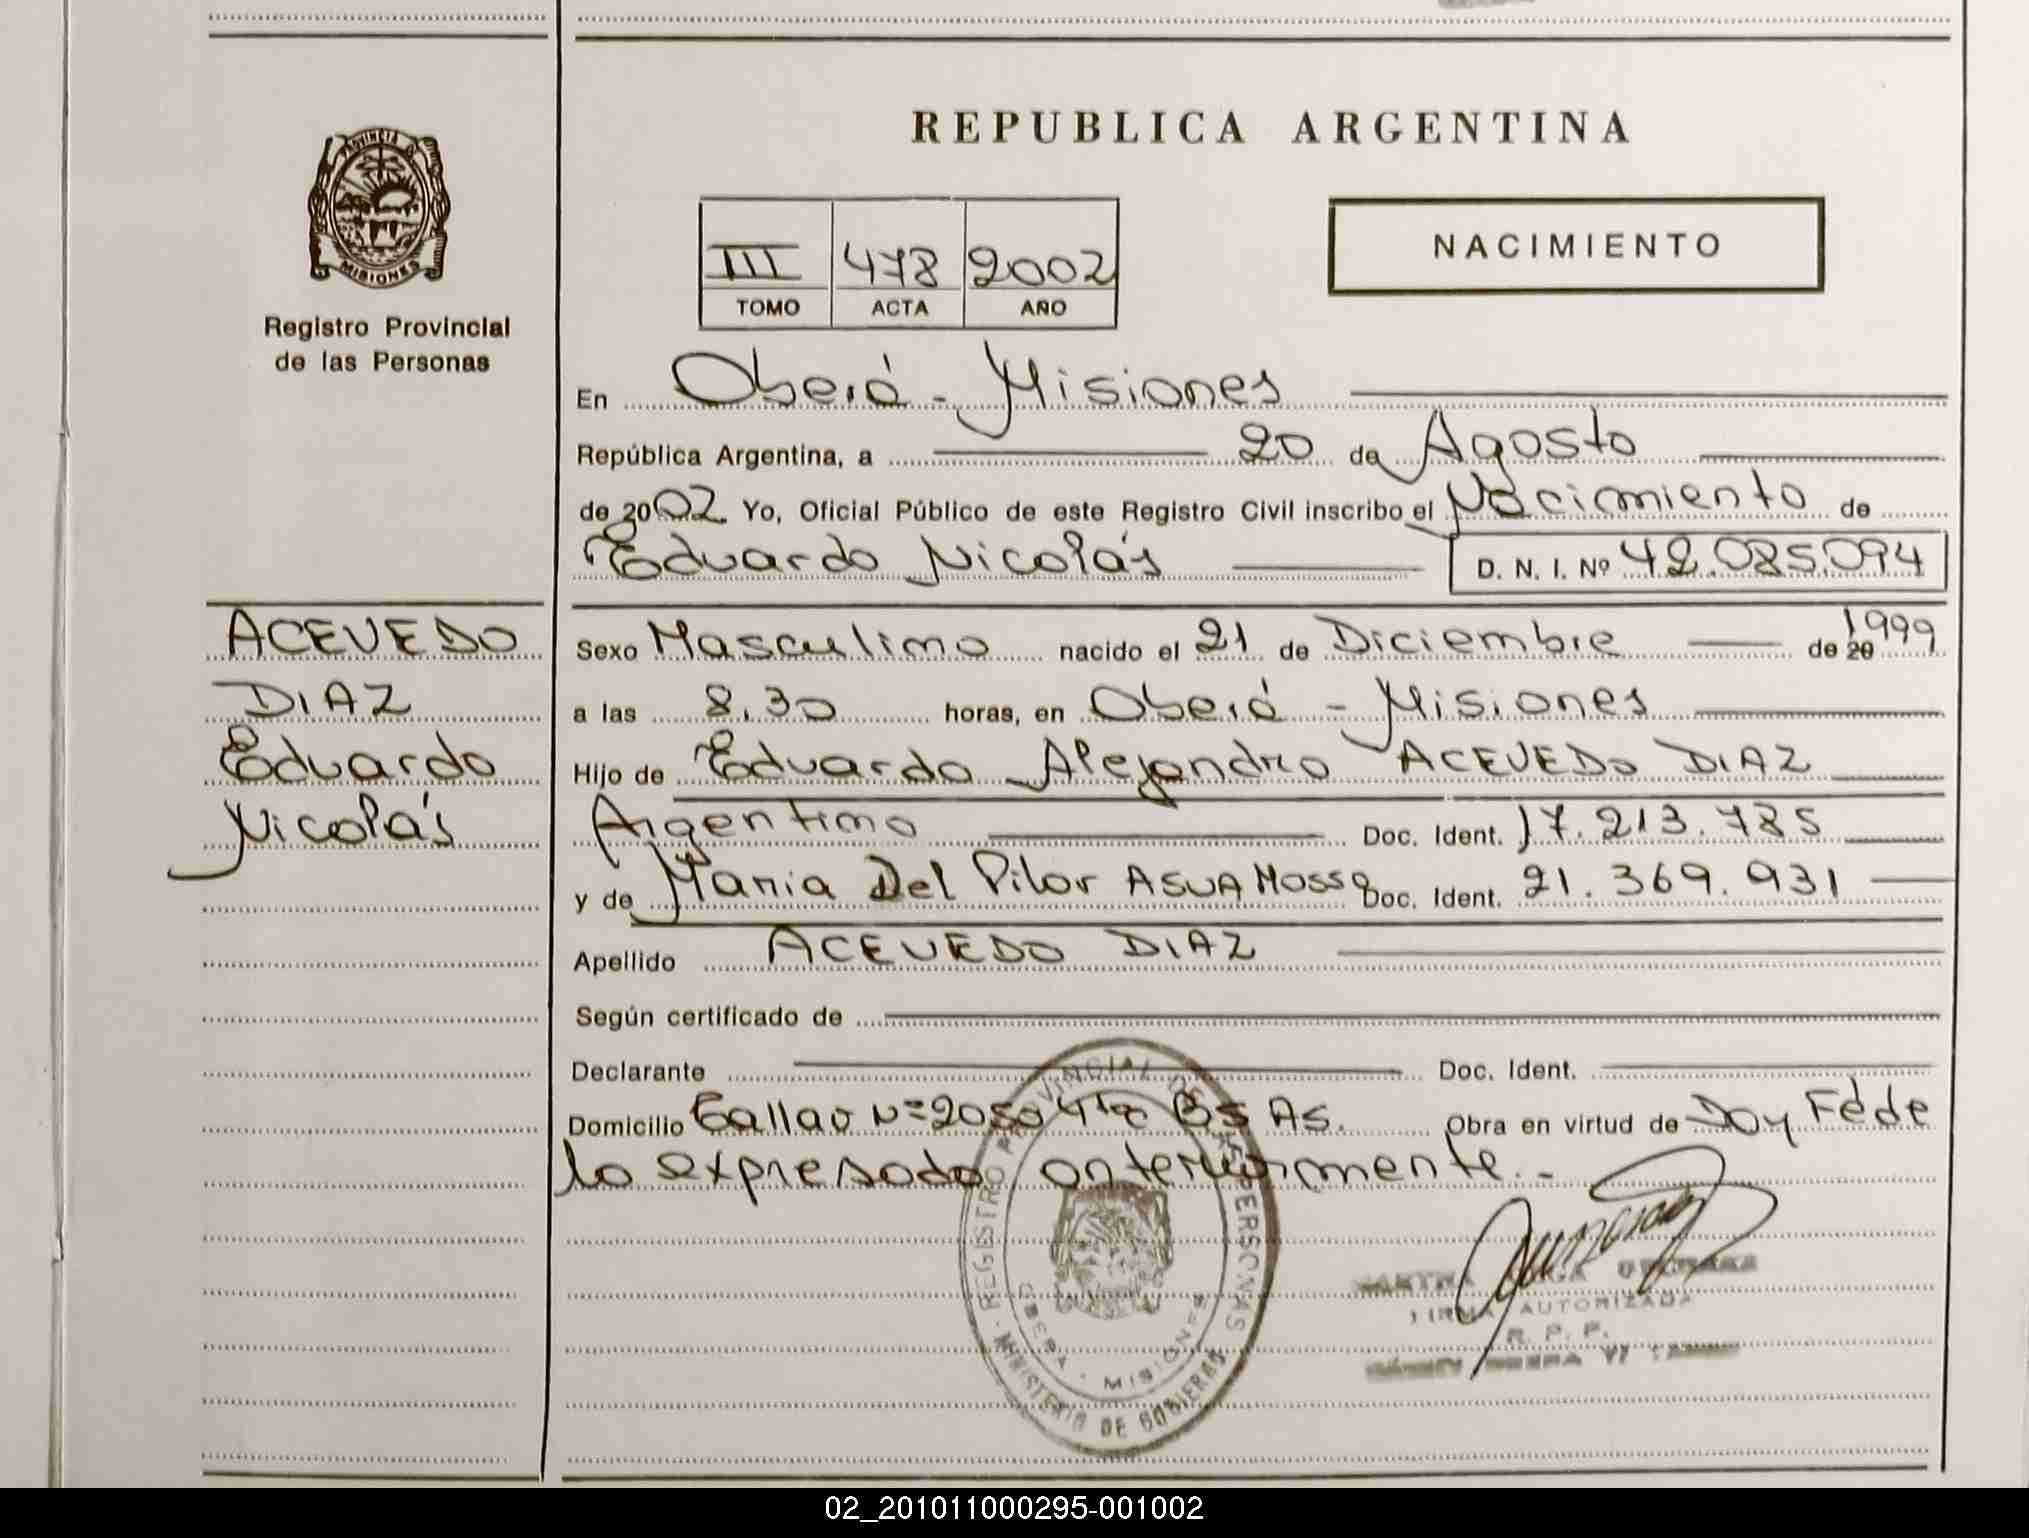 PROVINCIA DE
MISIONES
Registro Provincial
de las Personas
REPUBLICA ARGENTINA
NACIMIENTO
III 478 2002
TOMO ACTA AÑO
En Oberá - Misiones
República Argentina, a 20 de Agosto
de 2002 Yo, Oficial Público de este Registro Civil inscribo el Nacimiento de
Eduardo Nicolás D. N. I. Nº 42.085.094
ACEVEDO
DIAZ
Eduardo
Nicolás
Sexo Masculino nacido el 21 de Diciembre de 20 1999
a las 8.30 horas, en Oberá - Misiones
Hijo de Eduardo Alejandro ACEVEDO DIAZ
Argentino Doc. Ident. 17.213.785
y de Maria Del Pilar ASUA MOSSO Doc. Ident. 21.369.931
Apellido ACEVEDO DIAZ
Según certificado de
Declarante Doc. Ident.
Domicilio Callao Nº 2050 Bs As. Obra en virtud de Doy Fé de
lo expresado anteriormente.-
REGISTRO PROVINCIAL DE LAS PERSONAS
OBERA - MISIONES
MINISTERIO DE GOBIERNO
MARTHA
FIRMA AUTORIZADA
R. P. P.
02_201011000295-001002